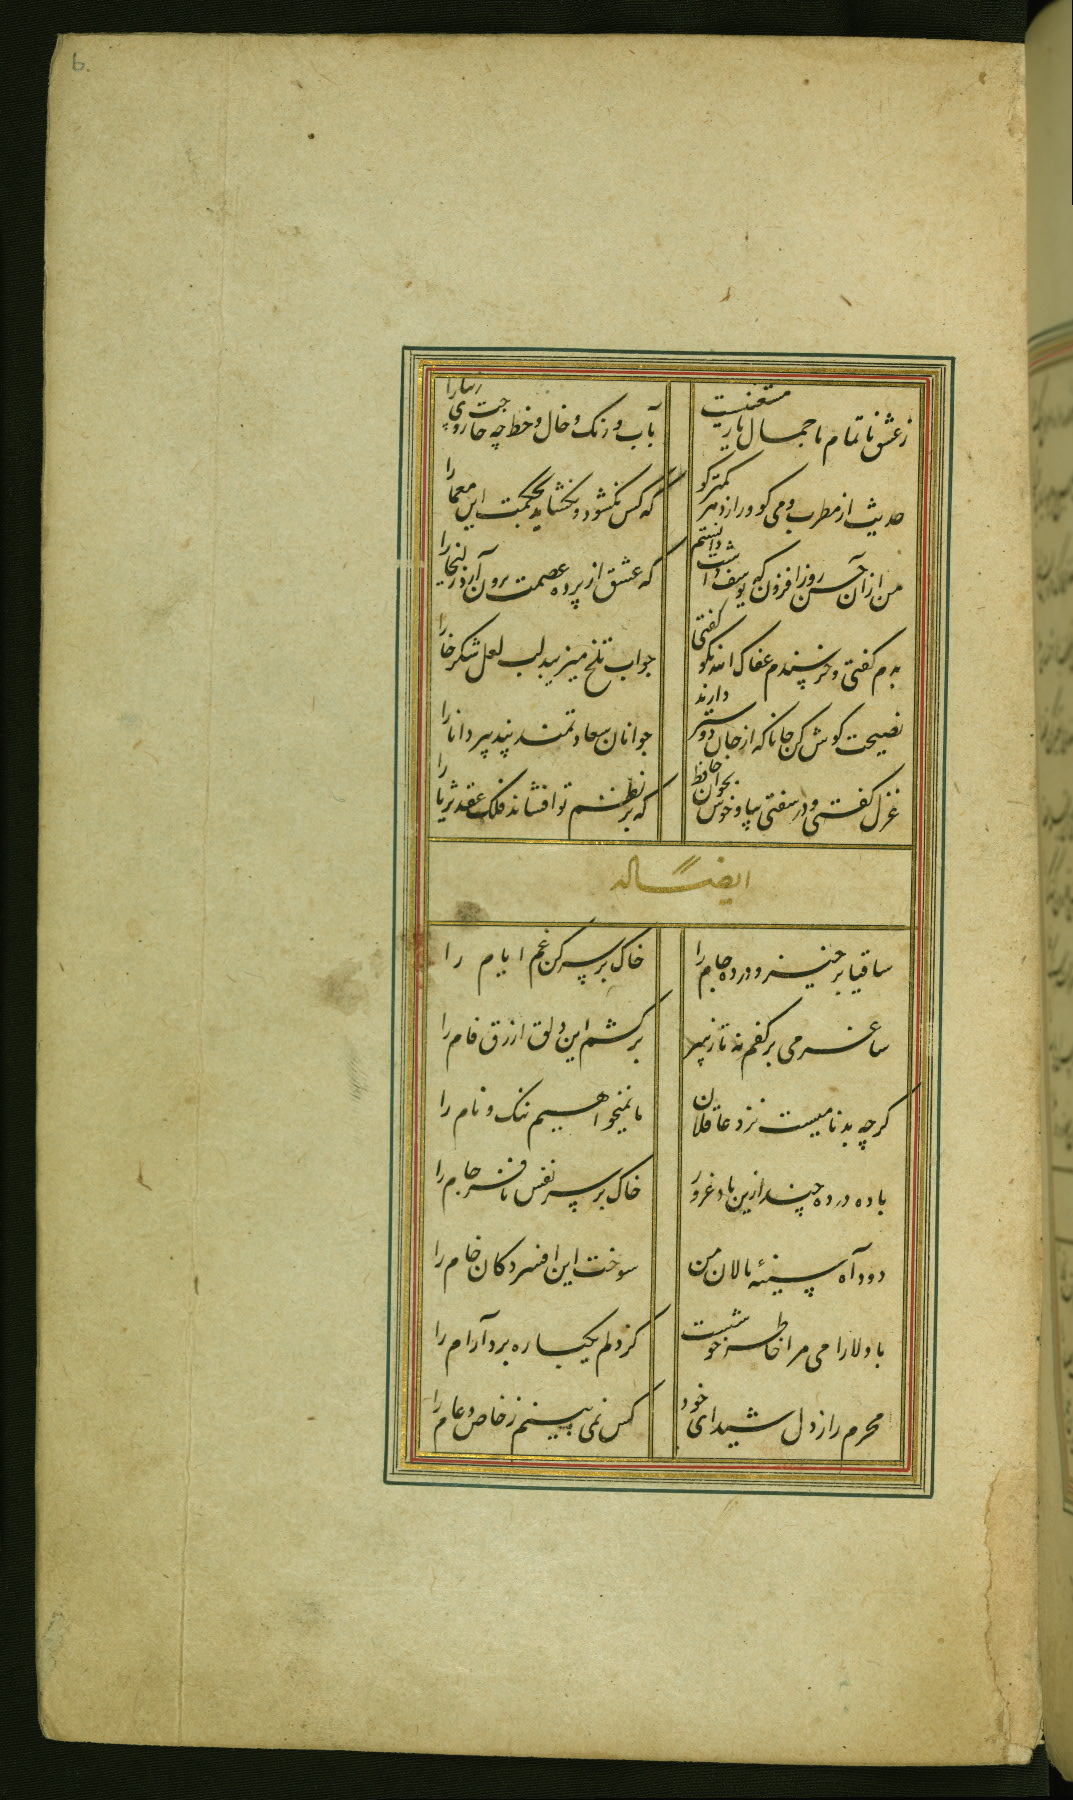 6.
ز عشق ناتمام ما جمال یار مستغنیست
بآب و رنک و خال و خط چه حاجت روی زیبا را
حدیث از مطرب و می کو و راز دهر کمتر کو
که کس نکشود و نکشاید بحکمت این معما را
من از آن حسن روز افزون که یوسف داشت دانستم
که عشق از پرده عصمت برون آرد زلیخا را
بدم کفتی و خرسندم عفاک الله نکو کفتی
جواب تلخ میزیبد لب لعل شکرخا را
نصیحت کوش کن جانا که از جان دوستر دارند
جوانان سعادتمند پند پیر دانا را
غزل کفتی و در سفتی بیا و خوش بخوان حافظ
که بر نظم تو افشاند فلک عقد ثریا را
ایضا له
ساقیا برخیز و در ده جام را
خاک بر سر کن غم ایام را
ساغر می بر کفم نه تا ز بر
برکشم این دلق ازرق فام را
کرچه بدنامیست نزد عاقلان
ما نمیخواهیم ننک و نام را
باده در ده چند ازین باد غرور
خاک بر سر نفس نافرجام را
دود آه سینهٔ نالان من
سوخت این افسردکان خام را
با دلارامی مرا خاطر خوشست
کز دلم یکباره برد آرام را
محرم راز دل شیدای خود
کس نمی بینم ز خاص و عام را